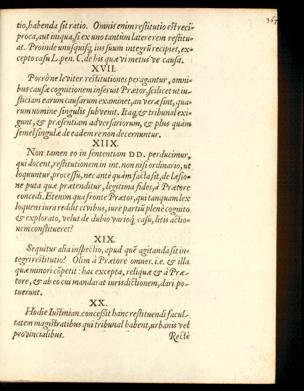 367
tio, habenda sit ratio. Omnis enim restitutio est reci-
proca, aut iniqua, si ex uno tantùm latere rem restitu-
at. Proinde unusquisq́; ius suum integrũ recipiet, ex-
cepto casu L. pen. C. de his quæ vi metus´ve causa.
XVII.
Porrò ne leviter restitutiones peragantur, omni-
bus causæ cognitionem inseruit Prætor, scilicet ut iu-
sticiam earum causarum examinet, an veræ sint, qua-
rum nomine singulis subvenit. Itaq́; & tribunal exi-
gunt, & præsentiam adversariorum, & plus quàm
semel singulæ de eadem re non decernuntur.
XIIX.
Non tamen eo in sententiam DD. perducimur,
qui docent, restitutionem in int. non nisi ordinario, ut
loquuntur, processu, nec antè quàm facta sit, de læsio-
ne puta quæ prætenditur, legitima fides, à Prætore
concedi. Etenim qua fronte Prætor, qui tanquam lex
loquens iura reddit civibus, iure partiũ plenè cognito
& explorato, velut de dubio varioq́; casu, litis actio-
nem constitueret?
XIX.
Sequitur alia inspectio, apud quẽ agitanda sit in-
tegri restitutio? Olim à Prætore omnes. i.e. & illa
quæ minori cõpetit: hac excepta, reliquæ & à Præ-
tore, & ab eo cui mandarat iurisdictionem, dari po-
tuerunt.
XX.
Hodie Iustinian. concessit hanc restituendi facul-
tatem magistratibus qui tribunal habent, urbanis vel
provincialibus.
Rectè